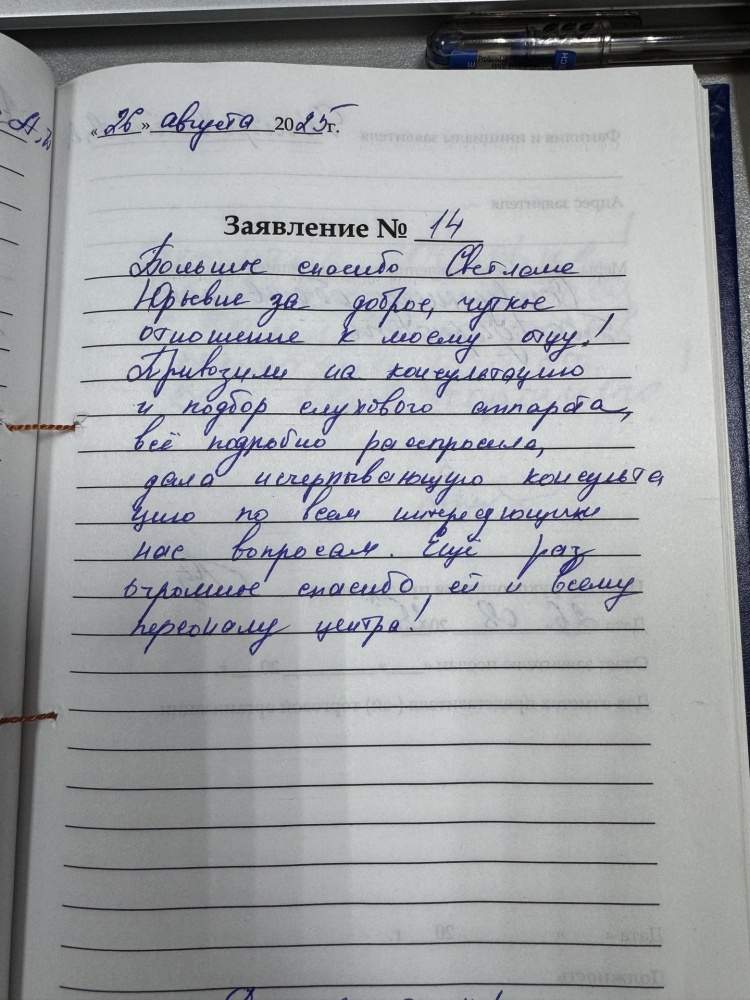 «26» августа 2025г.
Заявление № 14
Большое спасибо Светлане
Юрьевне за доброе, чуткое
отношение к моему отцу!
Привозили на консультацию
и подбор слухового аппарата,
всё подробно расспросила,
дала исчерпывающую консульта
цию по всем интересующим
нас вопросам. Ещё раз
огромное спасибо, ей и всему
персоналу центра!